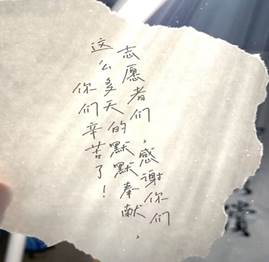 志愿者们，感谢你们
这么多天的默默奉献，
你们辛苦了！